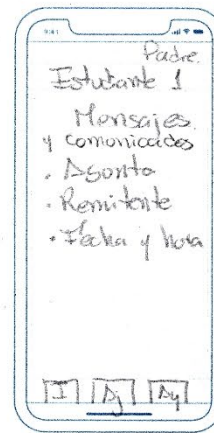 9:41
Padre
Estudiante 1
Mensajes
y comunicados
. Asunto
. Remitente
. Fecha y hora
I Aj Ay